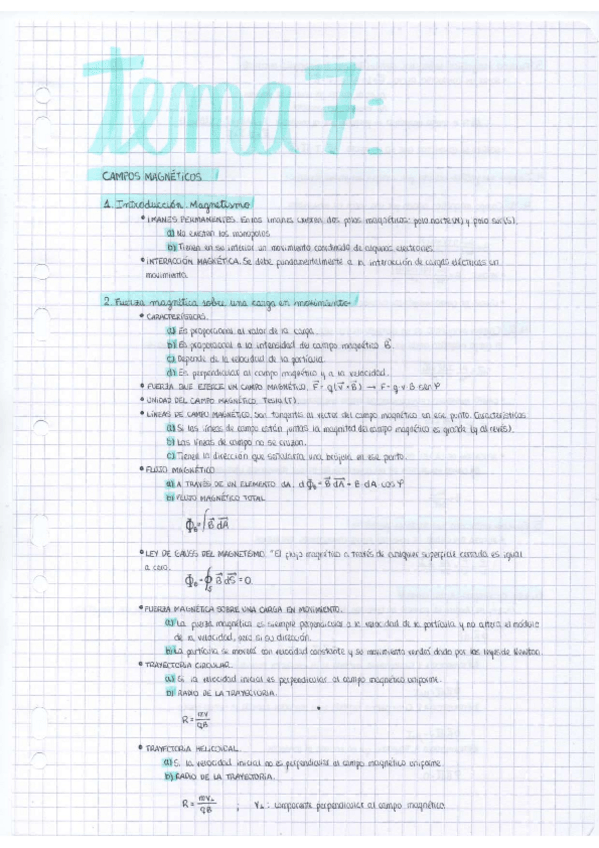 tema 7:
CAMPOS MAGNÉTICOS
1. Introducción. Magnetismo
• IMANES PERMANENTES. En los imanes existen dos polos magnéticos: polo norte(N) y polo sur(S).
a) No existen los monopolos
b) Tienen en su interior un movimiento coordinado de algunos electrones.
• INTERACCIÓN MAGNÉTICA. Se debe fundamentalmente a la interacción de cargas eléctricas en
movimiento.
2. Fuerza magnética sobre una carga en movimiento.
• CARACTERÍSTICAS.
a) Es proporcional al valor de la carga.
b) Es proporcional a la intensidad del campo magnético B⃗.
c) Depende de la velocidad de la partícula.
d) Es perpendicular al campo magnético y a la velocidad.
• FUERZA QUE EJERCE UN CAMPO MAGNÉTICO. F⃗ = q(v⃗ × B⃗) → F = q v B sen φ
• UNIDAD DEL CAMPO MAGNÉTICO. Tesla (T).
• LÍNEAS DE CAMPO MAGNÉTICO. Son tangentes al vector del campo magnético en ese punto. Características
a) Si las líneas de campo están juntas la magnitud del campo magnético es grande (y al revés).
b) Las líneas de campo no se cruzan.
c) Tienen la dirección que señalaría una brújula en ese punto.
• FLUJO MAGNÉTICO
a) A TRAVÉS DE UN ELEMENTO dA, dΦ_B = B⃗ dA⃗ = B dA cos φ
b) FLUJO MAGNÉTICO TOTAL
Φ_B = ∫ B⃗ dA⃗
• LEY DE GAUSS DEL MAGNETISMO. "El flujo magnético a través de cualquier superficie cerrada es igual
a cero.
Φ_B = ∮_S B⃗ dS⃗ = 0.
• FUERZA MAGNÉTICA SOBRE UNA CARGA EN MOVIMIENTO.
a) La fuerza magnética es siempre perpendicular a la velocidad de la partícula y no altera el módulo
de la velocidad, pero si su dirección.
b) La partícula se moverá con velocidad constante y su movimiento vendrá dado por las leyes de Newton.
• TRAYECTORIA CIRCULAR.
a) Si la velocidad inicial es perpendicular al campo magnético uniforme.
b) RADIO DE LA TRAYECTORIA.
R = mv/qB
• TRAYECTORIA HELICOIDAL.
a) Si la velocidad inicial no es perpendicular al campo magnético uniforme.
b) RADIO DE LA TRAYECTORIA.
R = mv⊥/qB ; v⊥: componente perpendicular al campo magnético